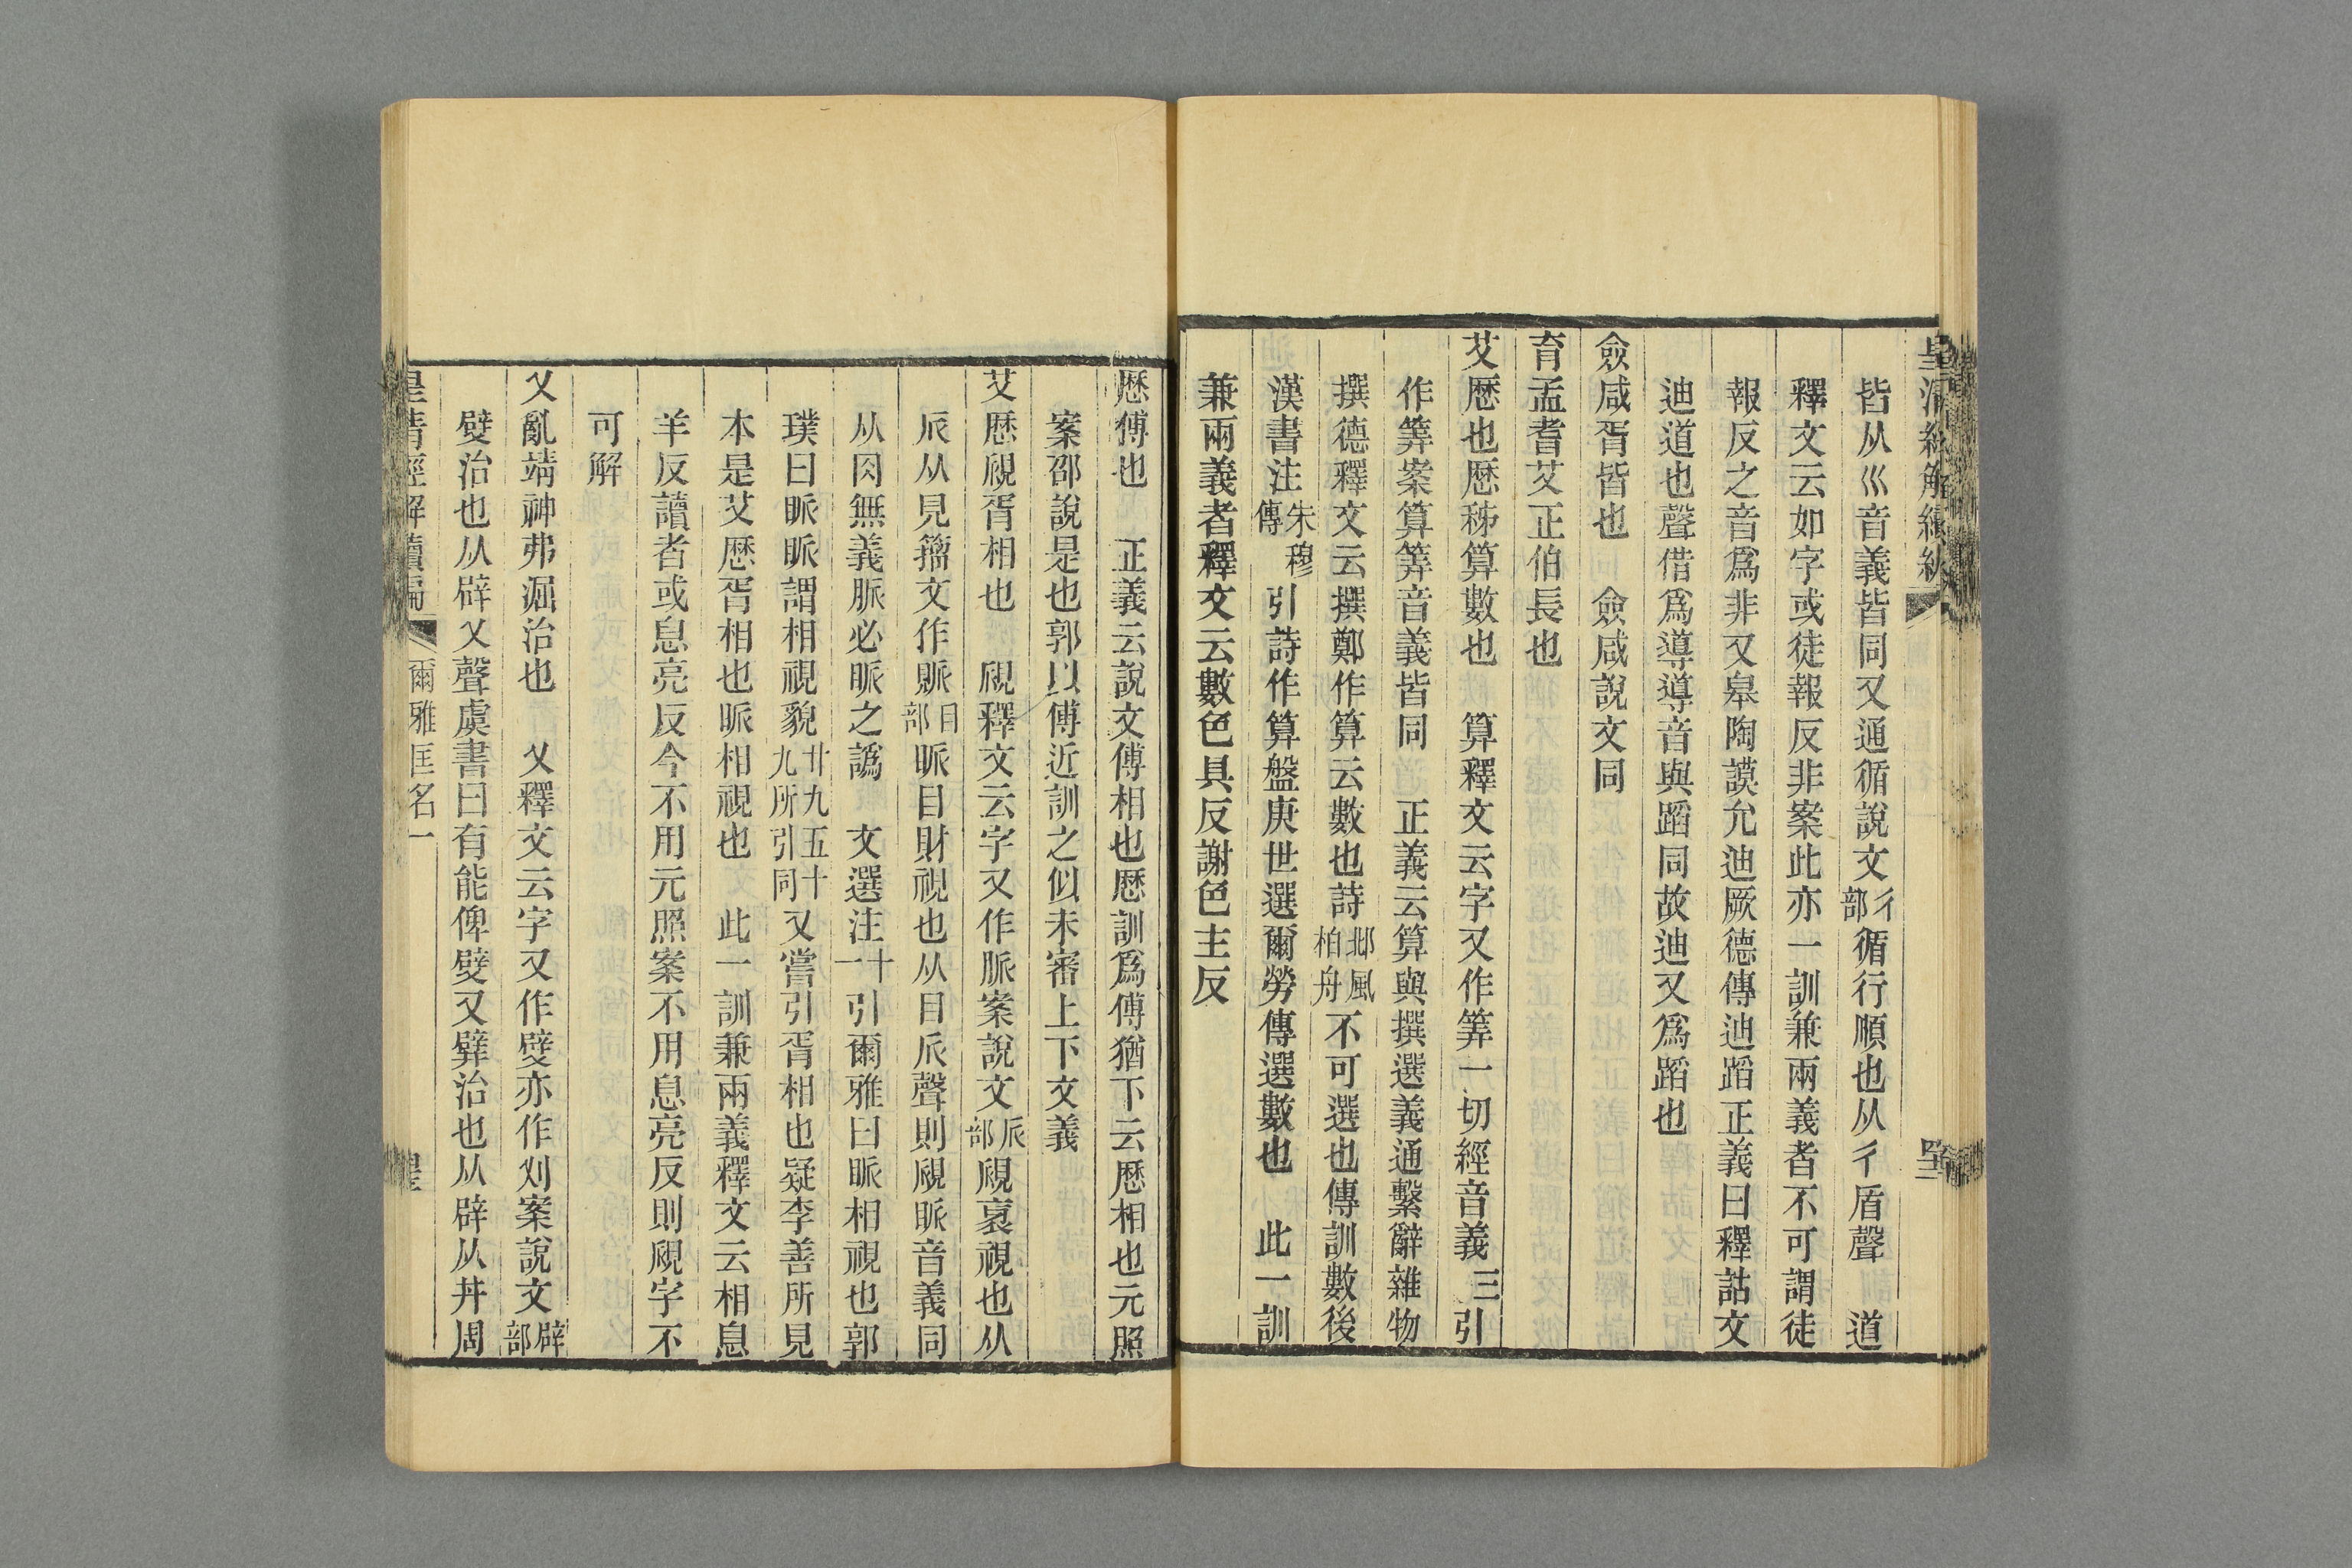 皇清經解續編
皆从巛音義皆同又通循說文彳部循行順也从彳盾聲　道
釋文云如字或徒報反非案此亦一訓兼兩義者不可謂徒
報反之音爲非又皋陶謨允迪厥德傳迪蹈正義曰釋詁文
迪道也聲借爲導導音與蹈同故迪又爲蹈也
僉咸胥皆也　僉咸說文同
育孟耆艾正伯長也
艾歷也歷秭算數也　算釋文云字又作筭一切經音義三引
作筭案算筭音義皆同　正義云算與撰選義通繫辭雜物
撰德釋文云撰鄭作算云數也詩邶風柏舟不可選也傳訓數後
漢書注朱穆傳引詩作算盤庚世選爾勞傳選數也　此一訓
兼兩義者釋文云數色具反謝色主反
歷傅也　正義云說文傅相也歷訓爲傅猶下云歷相也元照
案邵說是也郭以傅近訓之似未審上下文義
艾歷覛胥相也　覛釋文云字又作脈案說文𠂢部覛衺視也从
𠂢从見籀文作䀷目部眽目財視也从目𠂢聲則覛眽音義同
从肉無義脈必眽之譌　文選注十一引爾雅曰眽相視也郭
璞曰眽眽謂相視貌廿九五十九所引同又嘗引胥相也疑李善所見
本是艾歷胥相也眽相視也　此一訓兼兩義釋文云相息
羊反讀者或息亮反今不用元照案不用息亮反則覛字不
可解
乂亂靖神弗淈治也　乂釋文云字又作嬖亦作刈案說文辟部
嬖治也从辟乂聲虞書曰有能俾嬖又擘治也从辟从井周
皇清經解續編　爾雅匡名一